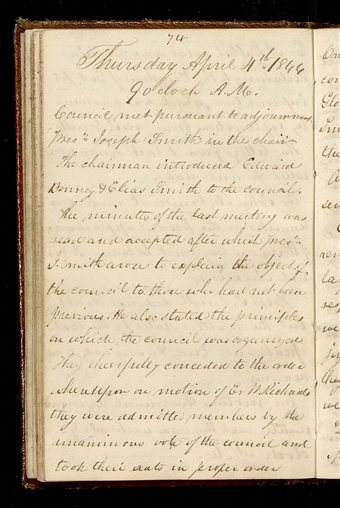 74
Thursday April 4th. 1844
9 o'clock A.M.
Council met pursuant to adjournment
Presn. Joseph Smith in the chair
The chairman introduced Edward
Bonney & Elias Smith to the council.
The minutes of the last meeting was
read and accepted after which prest.
J. Smith arose to explain the object of
the council to those who had not been
previous. He also stated the principles
on which the council was organized
They cheerfully conceded to the order
whereupon on motion of Er W. Richards
they were admitted members by the
unanimous vote of the council and
took their seats in proper order
On
con
the